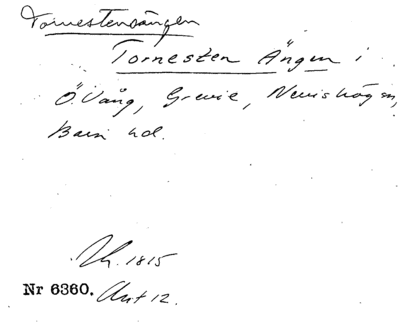 Tornestensängen
Tornesten Ängen i
Ö. Vång, Grevie, Nevishögsn,
Bara hd.
Uh. 1815
Nr 6360. Akt 12.